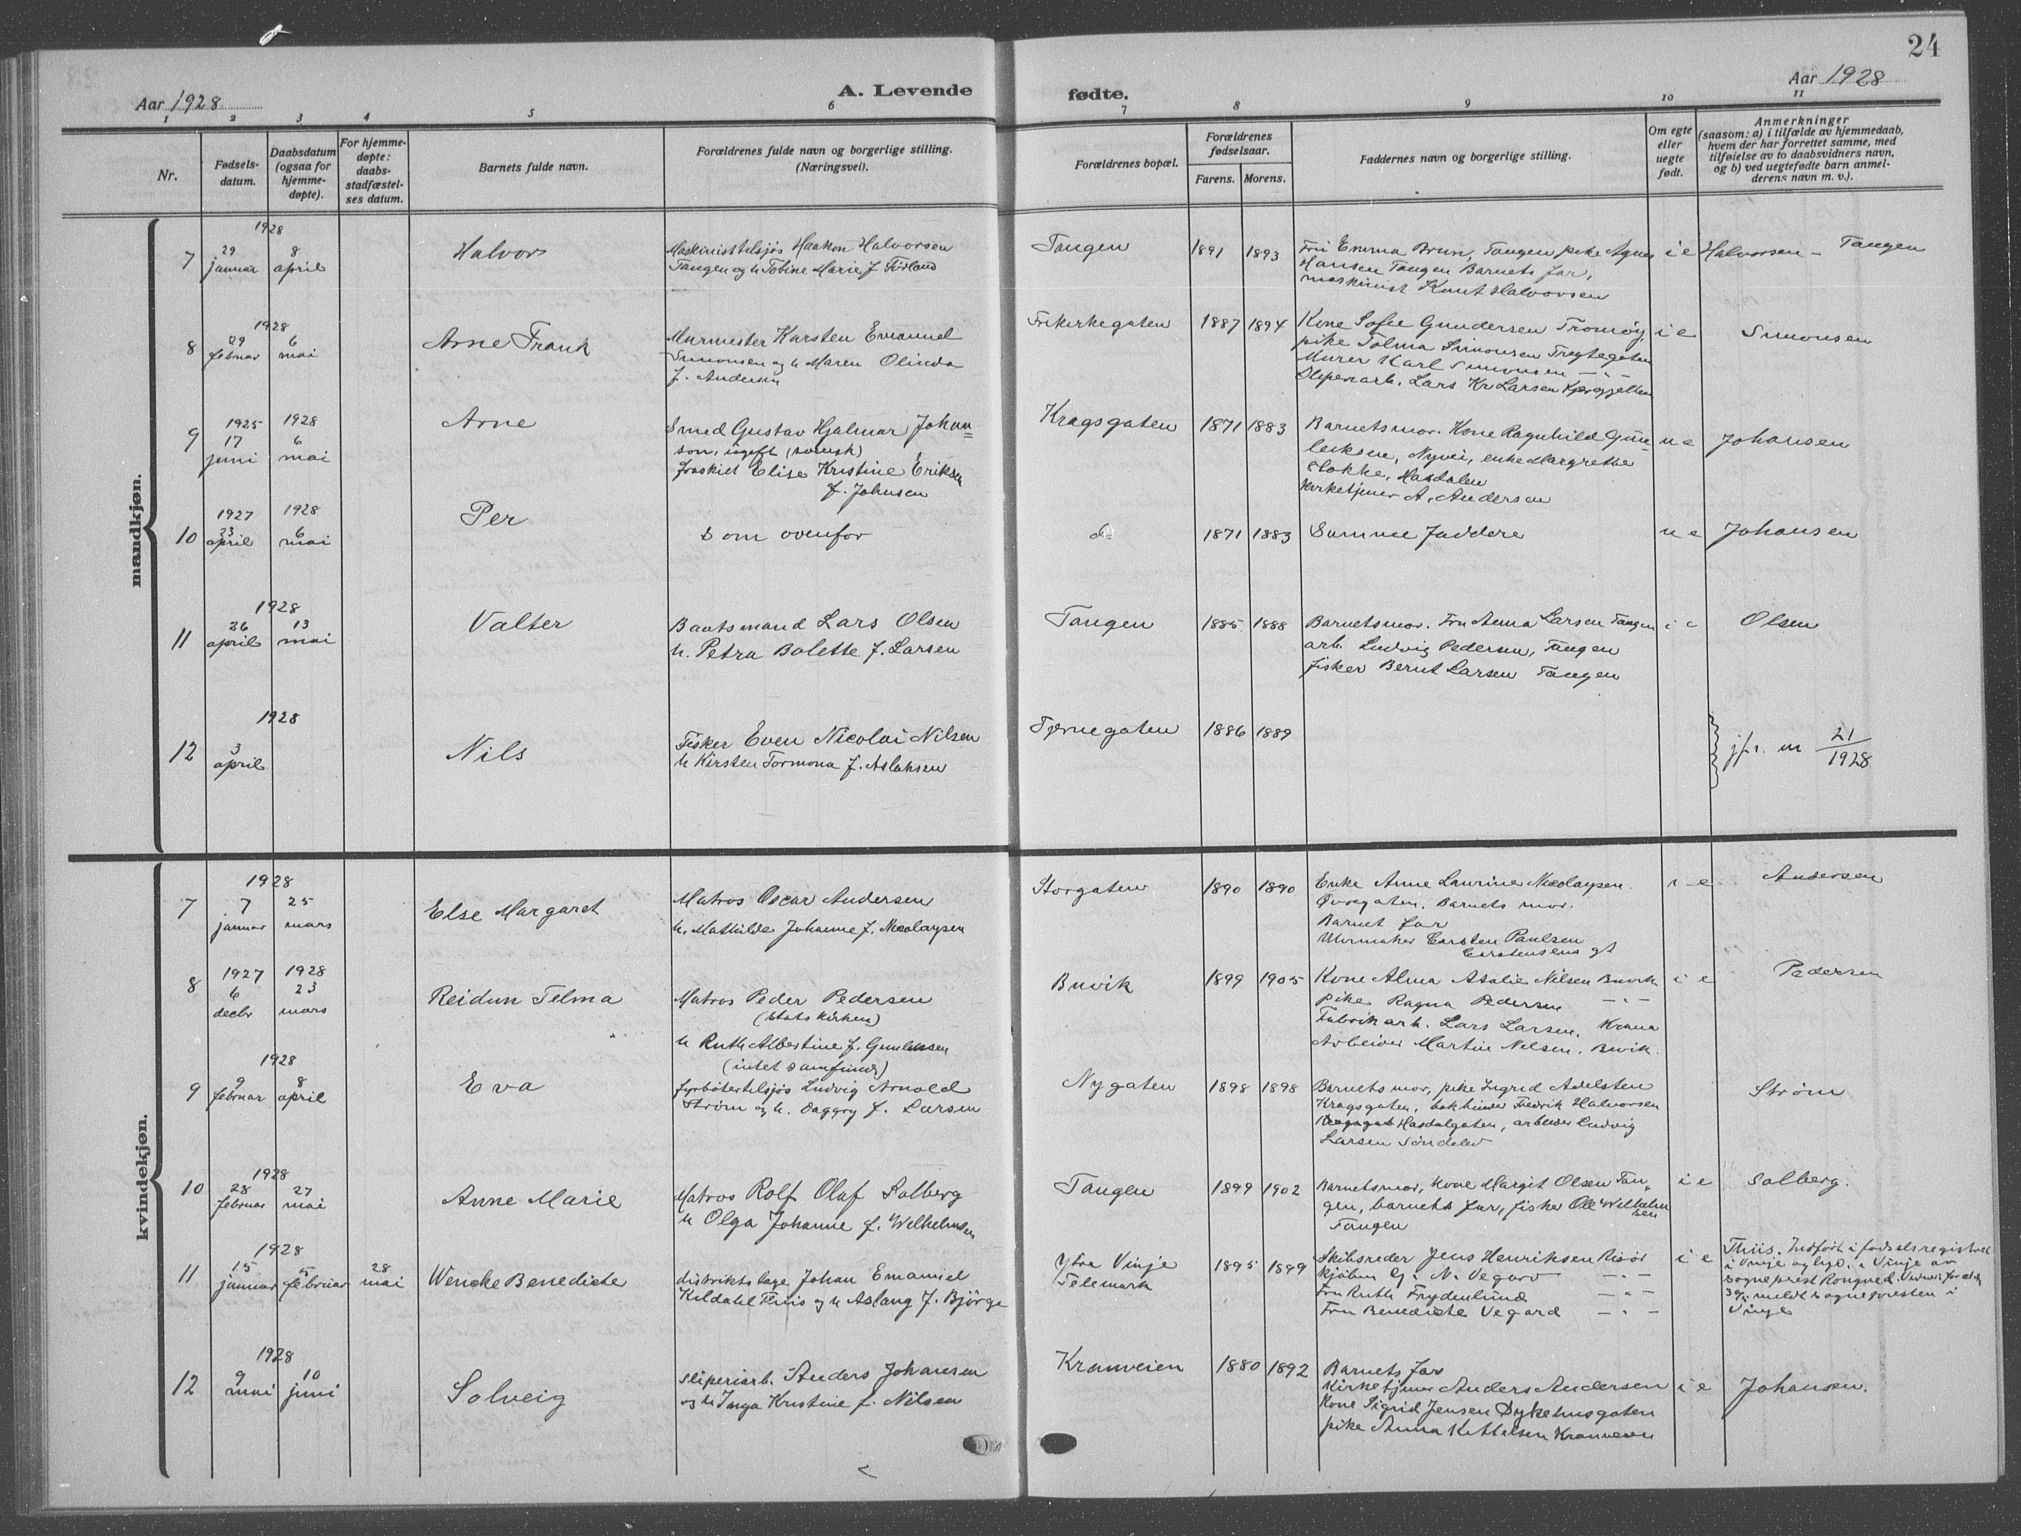 24
Aar 1928
A. Levende
fødte.
Aar 1928
1 2 3 4 5 6 7 8 9 10 11
Nr.
Fødsels-
datum.
Daabsdatum
(ogsaa for
hjemme-
døpte).
For hjemme-
døpte:
daabs-
stadfæstel-
ses datum.
Barnets fulde navn.
Forældrenes fulde navn og borgerlige stilling.
(Næringsvei).
Forældrenes bopæl.
Forældrenes
fødselsaar.
Farens. Morens.
Faddernes navn og borgerlige stilling.
Om egte
eller
uegte
født.
Anmerkninger
(saasom: a) i tilfælde av hjemmedaab,
hvem der har forrettet samme, med
tilføielse av to daabsvidners navn,
og b) ved uegtefødte barn anmel-
derens navn m. v.).
mandkjøn.
1928
7
29 januar
8 april
Halvor
Maskinisttilsjøs Haakon Halvorsen
Tangen og h. Tobine Marie f.
Tangen
1891 1893
Fru Emma Brun, Tangen pike Agnes
Hansen Tangen Barnets far,
maskinist Knut Halvorsen
i e
Halvorsen - Tangen
1928
8
29 februar
6 mai
Arne Frank
Murmester Karsten Emanuel
Simonsen og h Maren Olinda
f. Andersen
Frikirkegaten
1887 1894
Kone Sofie Gundersen Tromøy
pike Tolma Simonsen
Murer Karl Simonsen — " —
Sliperiarb. Lars Kr Larsen
i e
Simonsen
9
1925
17 juni
1928
6 mai
Arne
Smed Gustav Hjalmar Johan=
son, ugift (svensk)
fraskilt Elise Kristine Eriksen
f. Johnsen
Kragsgaten
1871 1883
Barnetsmor. Kone Ragnhild Gun
leiksen, Nyvei, enke Margrethe
Stokke, Hasdalen
Kirketjener A. Andersen
u e
Johansen
10
1927
23 april
1928
6 mai
Per
Som ovenfor
do
1871 1883
Samme faddere
u e
Johansen
1928
11
26 april
13 mai
Valter
Baatsmand Lars Olsen
h. Petra Bolette f. Larsen
Tangen
1885 1888
Barnetsmor. Fru Anna Larsen Tangen
arb. Ludvig Pedersen, Tangen
fisker Bernt Larsen Tangen
i e
Olsen
1928
12
3 april
Nils
Fisker Even Nicolai Nilsen
h Kirsten Tormona f. Aslaksen
Tjernegaten
1886 1889
jfr. nr 21/1928
kvindekjøn.
1928
7
7 januar
25 mars
Else Margaret
Matros Oscar Andersen
h. Mathilde Johanne f. Nicolaysen
Storgaten
1890 1890
Enke Anne Laurine Nicolaysen.
Øvregaten. Barnets mor.
Barnet far
Urmaker Carsten Paulsen
Carstensens gt
i e
Andersen
8
1927
6 decbr
1928
23 mars
Reidun Telma
Matros Peder Pedersen
(Statskirken)
h Ruth Albertine f. Gunleiksen
(intet samfund)
Buvik
1899 1905
Kone Alma Atalie Nilsen Buvik
pike Ragna Pedersen — " —
Fabrikarb. Lars Larsen, Krana
Arbeider Martin Nilsen, Buvik.
i e
Pedersen
1928
9
9 februar
8 april
Eva
fyrbøtertilsjøs Ludvig Arnold
Strøm og h. Dagny f. Larsen
Nygaten
1898 1898
Barnets mor, pike Ingrid Adelsten
Kragsgaten, bokbinder Fredrik Halvorsen
Hasdalgaten, arbeider Ludvig
Larsen Søndeled
Strøm
1928
10
28 februar
27 mai
Anne Marie
Matros Rolf Olaf Solberg
h Olga Johanne f. Wilhelmsen
Tangen
1899 1902
Barnetsmor, Kone Margit Olsen Tan-
gen, barnets far, fisker Ole Wilhelm
sen
Tangen
i e
Solberg.
1928
11
15 januar
5 februar
28 mai
Wencke Benedicte
distriktslæge Johan Emanuel
Kildahl Thiis og h Aslaug f. Bjørge
Ytre Vinje
Telemark
1895 1899
Skibsreder Jens Henriksen Risør
kjøbm G. N. Vegard — " —
Fru Ruth Frydenlund — " —
Fru Benedicte Vegard — " —
i e
Thiis. Indført i fødselsregistret
i Vinje
sogneprest
meldt sognepresten i
Vinje
1928
12
9 mai
10 juni
Solveig
Sliperiarb. Anders Johansen
og h Inga Kristine f. Nilsen
Kranveien
1880 1892
Barnets far
Kirketjener Anders Andersen
Kone Sigrid Jensen Dykehusgaten
pike Anna Kittelsen Kranveien
i e
Johansen.